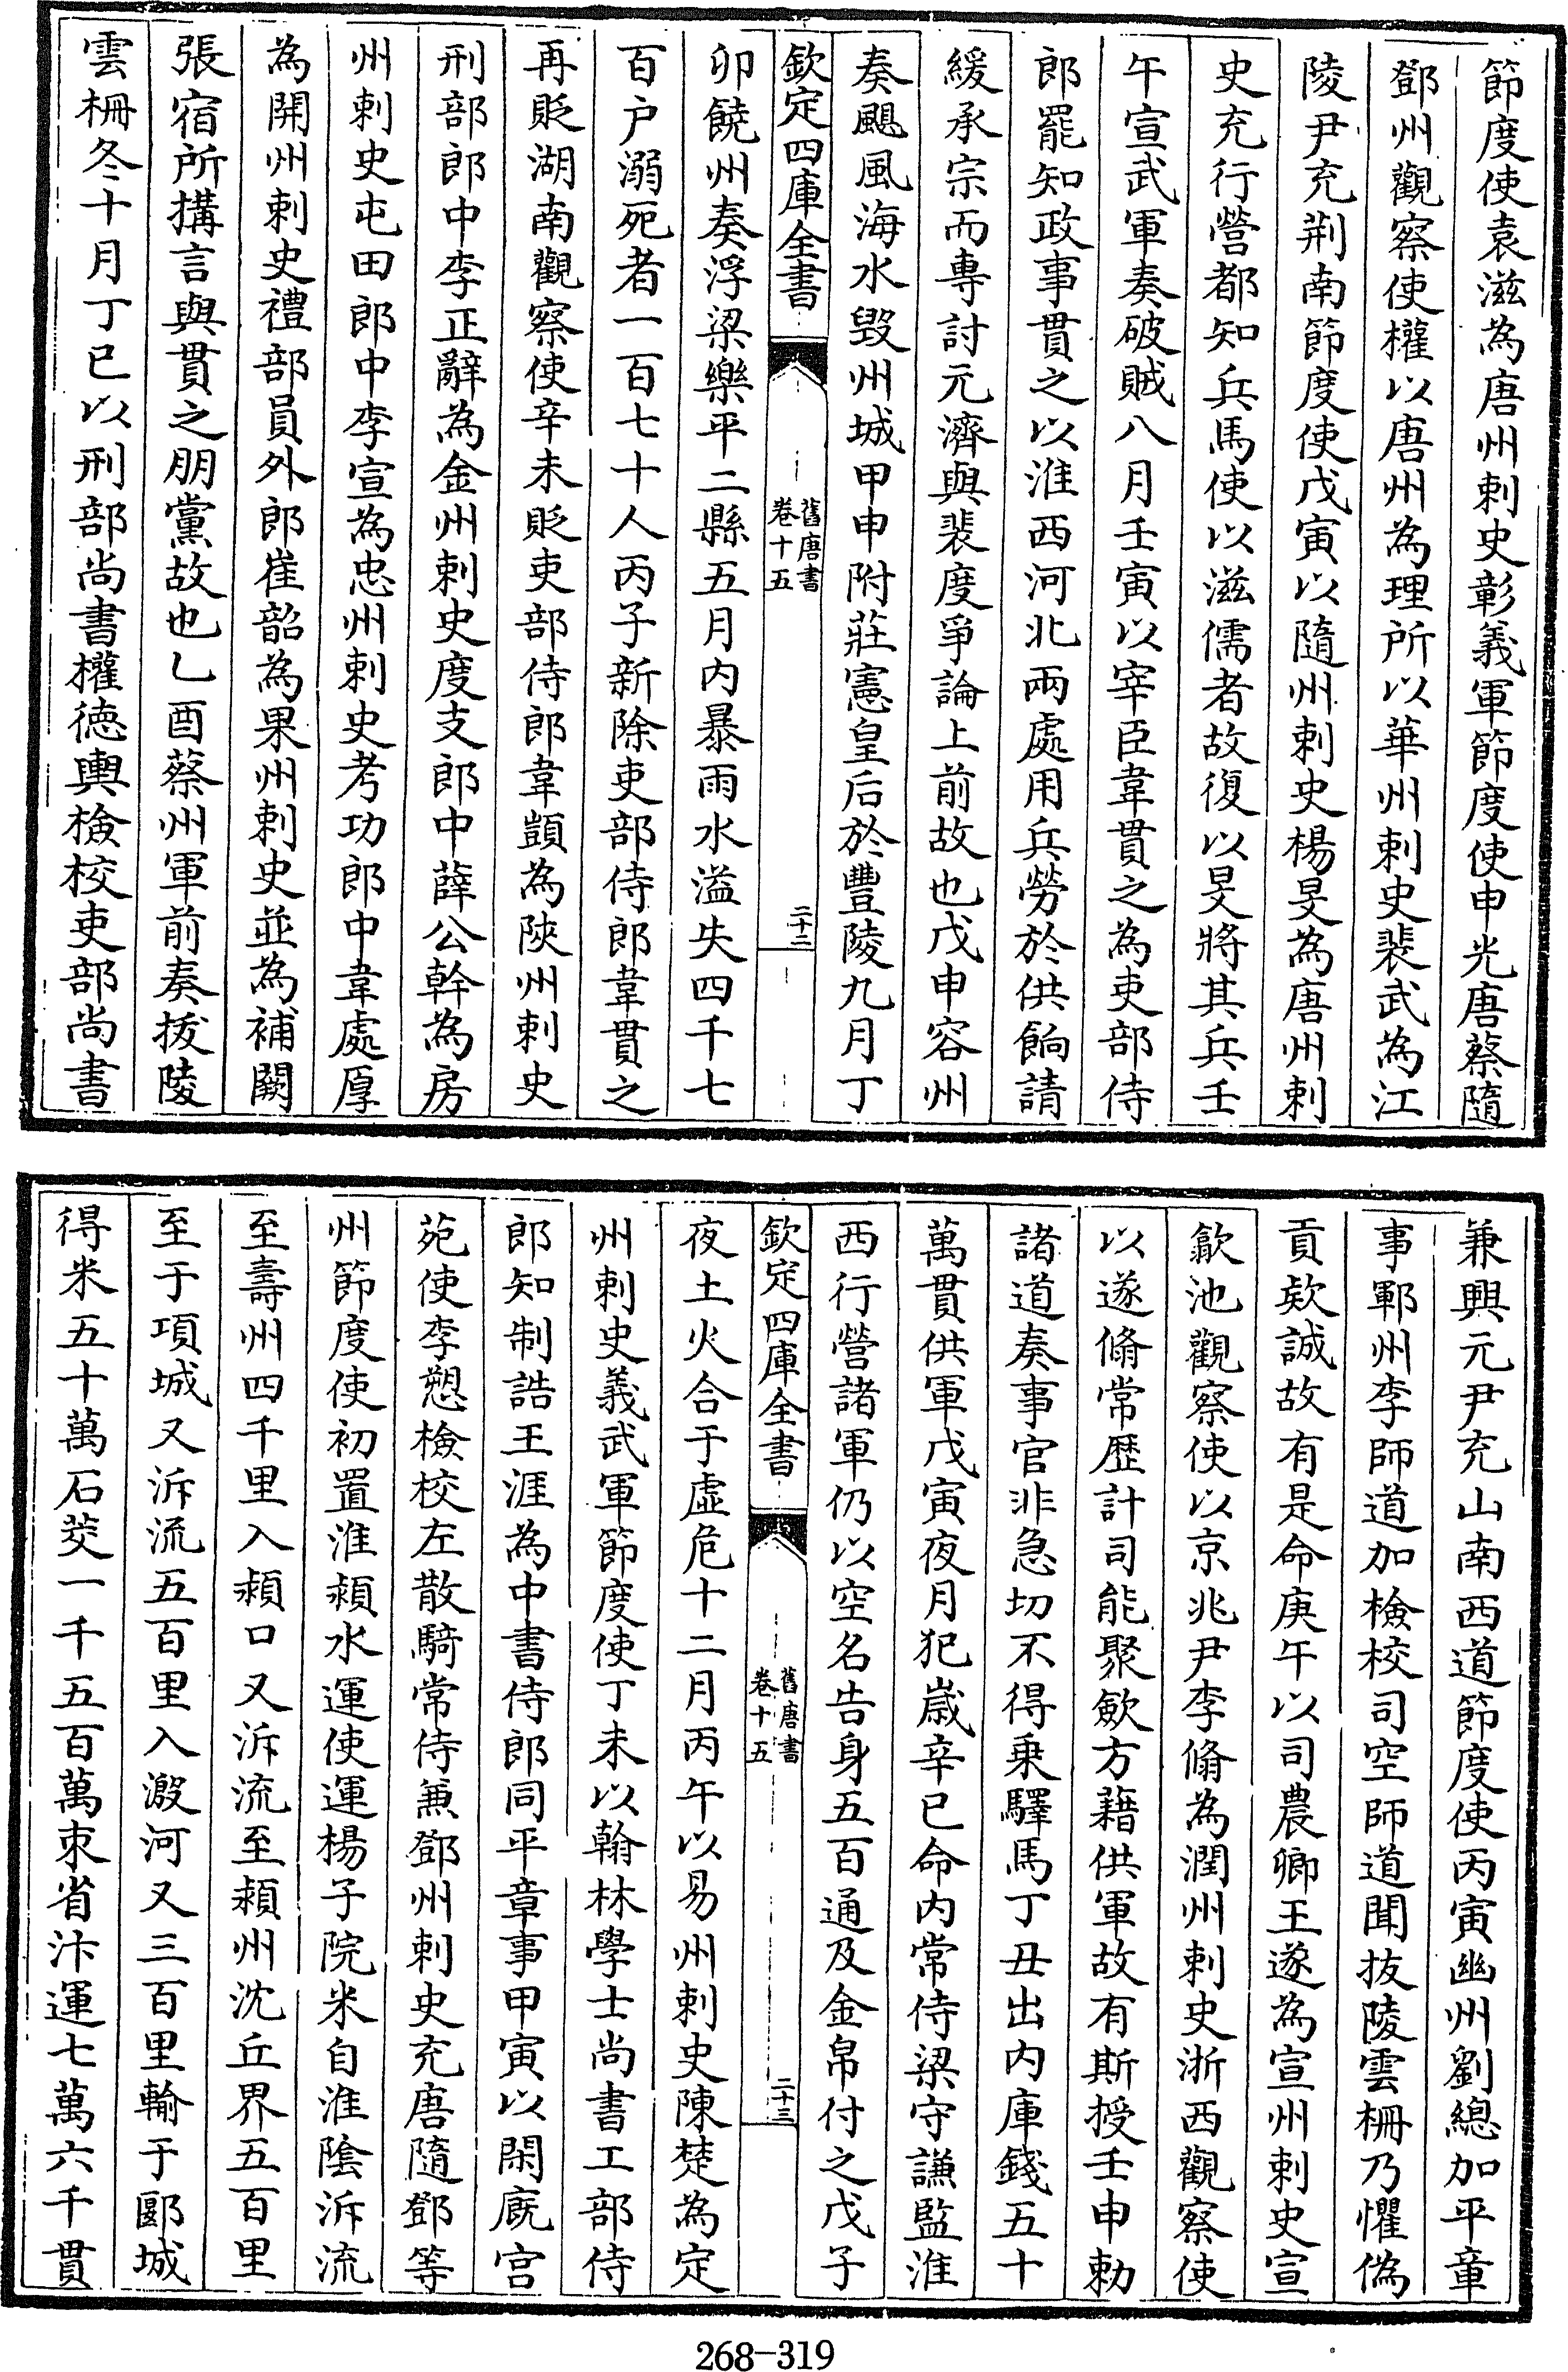 節度使袁滋為唐州刺史彰義軍節度使申光唐蔡隨
鄧州觀察使權以唐州為理所以華州刺史裴武為江
陵尹充荆南節度使戊寅以隨州刺史楊旻為唐州刺
史充行營都知兵馬使以滋儒者故復以旻將其兵壬
午宣武軍奏破賊八月壬寅以宰臣韋貫之為吏部侍
郎罷知政事貫之以淮西河北兩處用兵勞於供餉請
緩承宗而專討元濟與裴度爭論上前故也戊申容州
奏颶風海水毁州城甲申附莊憲皇后於豐陵九月丁
欽定四庫全書
舊唐書
卷十五
二十二
卯饒州奏浮梁樂平二縣五月内暴雨水溢失四千七
百户溺死者一百七十人丙子新除吏部侍郎韋貫之
再貶湖南觀察使辛未貶吏部侍郎韋顗為陜州刺史
刑部郎中李正辭為金州刺史度支郎中薛公幹為房
州刺史屯田郎中李宣為忠州刺史考功郎中韋處厚
為開州刺史禮部員外郎崔韶為果州刺史並為補闕
張宿所搆言與貫之朋黨故也乙酉蔡州軍前奏拔陵
雲柵冬十月丁巳以刑部尚書權徳輿檢校吏部尚書
兼興元尹充山南西道節度使丙寅幽州劉總加平章
事鄆州李師道加檢校司空師道聞拔陵雲柵乃懼偽
貢欵誠故有是命庚午以司農卿王遂為宣州刺史宣
歙池觀察使以京兆尹李翛為潤州刺史浙西觀察使
以遂翛常歴計司能聚歛方藉供軍故有斯授壬申勅
諸道奏事官非急切不得乗驛馬丁丑出内庫錢五十
萬貫供軍戊寅夜月犯嵗辛巳命内常侍梁守謙監淮
西行營諸軍仍以空名告身五百通及金帛付之戊子
欽定四庫全書
舊唐書
卷十五
二十三
夜土火合于虚危十二月丙午以易州刺史陳楚為定
州刺史義武軍節度使丁未以翰林學士尚書工部侍
郎知制誥王涯為中書侍郎同平章事甲寅以閑廐宫
苑使李愬檢校左散騎常侍兼鄧州刺史充唐隨鄧等
州節度使初置淮潁水運使運楊子院米自淮隂泝流
至壽州四千里入潁口又泝流至潁州沈丘界五百里
至于項城又泝流五百里入溵河又三百里輸于郾城
得米五十萬石茭一千五百萬束省汴運七萬六千貫
268-319